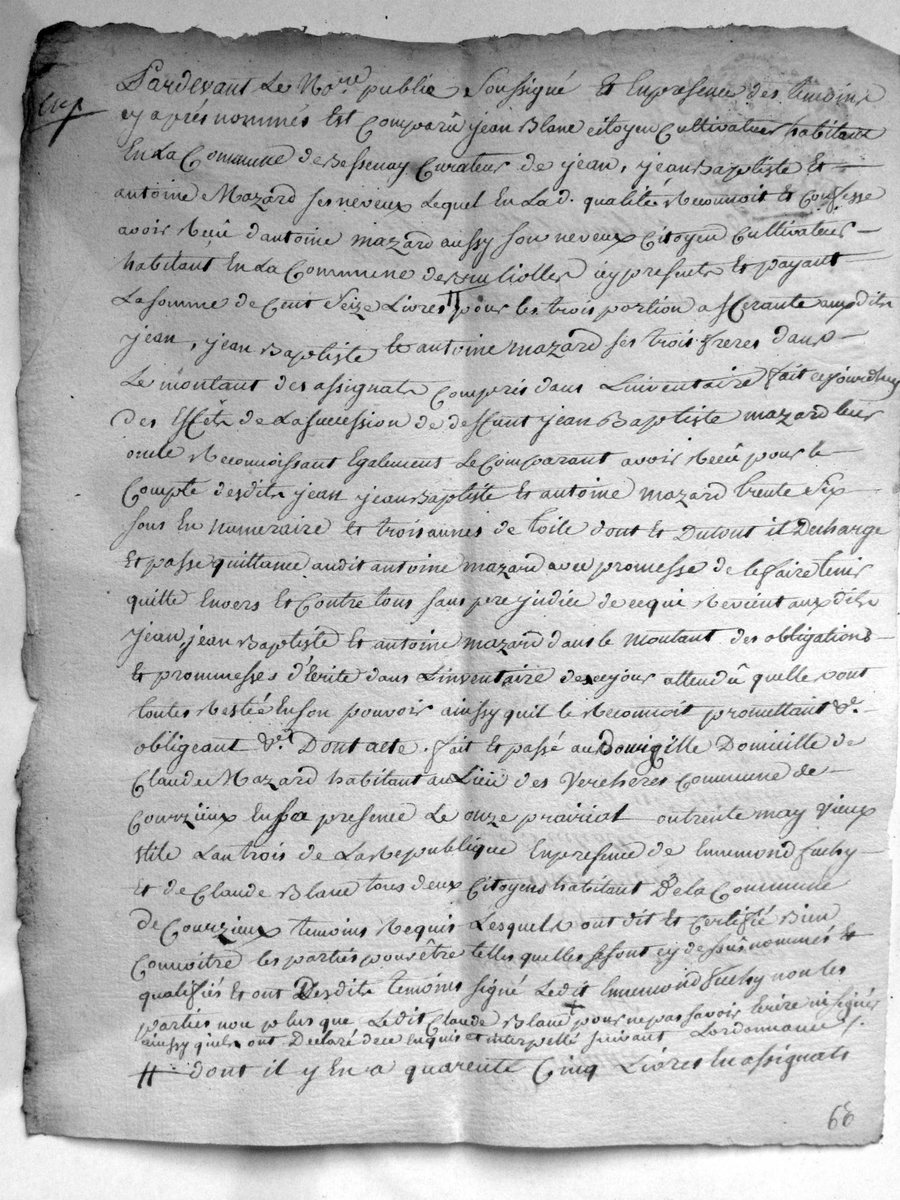 Pardevant Le No.re public Soussigné Et Enpresence des temoins
cy aprés nommés Est Comparû jean Blanc citoyen Cultivateur habitant
En La Commune de Bessenay Curateur de jean, jean Baptiste Et
antoine Mazard ses neveux Lequel En Lad. qualité Reconnoit Et Confesse
avoir Recû d'antoine mazard aussy son neveux Citoyen Cultivateur
habitant En La Commune de icy present Et payant
La somme de Cent Seize Livres // pour les trois portion afferante auxdits
jean, jean Baptiste Et antoine mazard ses trois freres dans
Le montant des assignats Compris dans Linventaire fait cejourdhuy
des Effets de La succession de deffunt jean Baptiste mazard leur
oncle Reconnoissant Egalement Le Comparant avoir Recû pour le
Compte desdits jean jean Baptiste Et antoine mazard trente Six
sous En numeraire Et trois aunes de toile dont Et Dutout il Decharge
Et passe quittance audit antoine mazard avec promesse de le faire tenir
quitte Envers Et Contre tous sans prejudice de cequi Revient auxdits
jean, jean Baptiste Et antoine mazard dans le montant des obligations
Et promesses d'Ecrite dans Linventaire de cejour attendû quelle sont
toutes Restée En son pouvoir ainssy quil le Reconnoit promettant &.
obligeant &. Dont acte. fait Et passé au Domicille de
Claude Mazard habitant au Lieu des Verchéres Commune de
Courzieux En sa presence Le onze prairial ou trente may vieux
stile Lan trois de La Republique Enpresence de Ennemond fuchy
Et de Claude Blanc tous deux Citoyens habitant De la Commune
de Courzieux temoins Requis Lesquels ont dit Et Certifié Bien
Connoitre les parties pour être telles quelles se sont cy dessus nommés Et
qualifiés Et ont Desdits temoins signé Ledit Ennemond fuchy non les
parties non plus que Ledit Claude Blanc pour ne pas savoir Ecrire ni signer
ainssy quils ont Declaré de ce Enquis et interpellé suivant Lordonnance
// dont il y En a quarente Cinq Livres En assignats
68